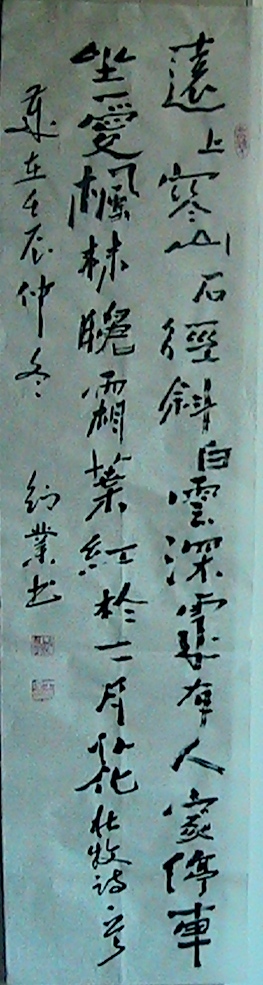 遠上寒山石徑斜白雲深處有人家停車
坐愛楓林晚霜葉紅於二月花杜牧詩
歲在壬辰仲冬 業书